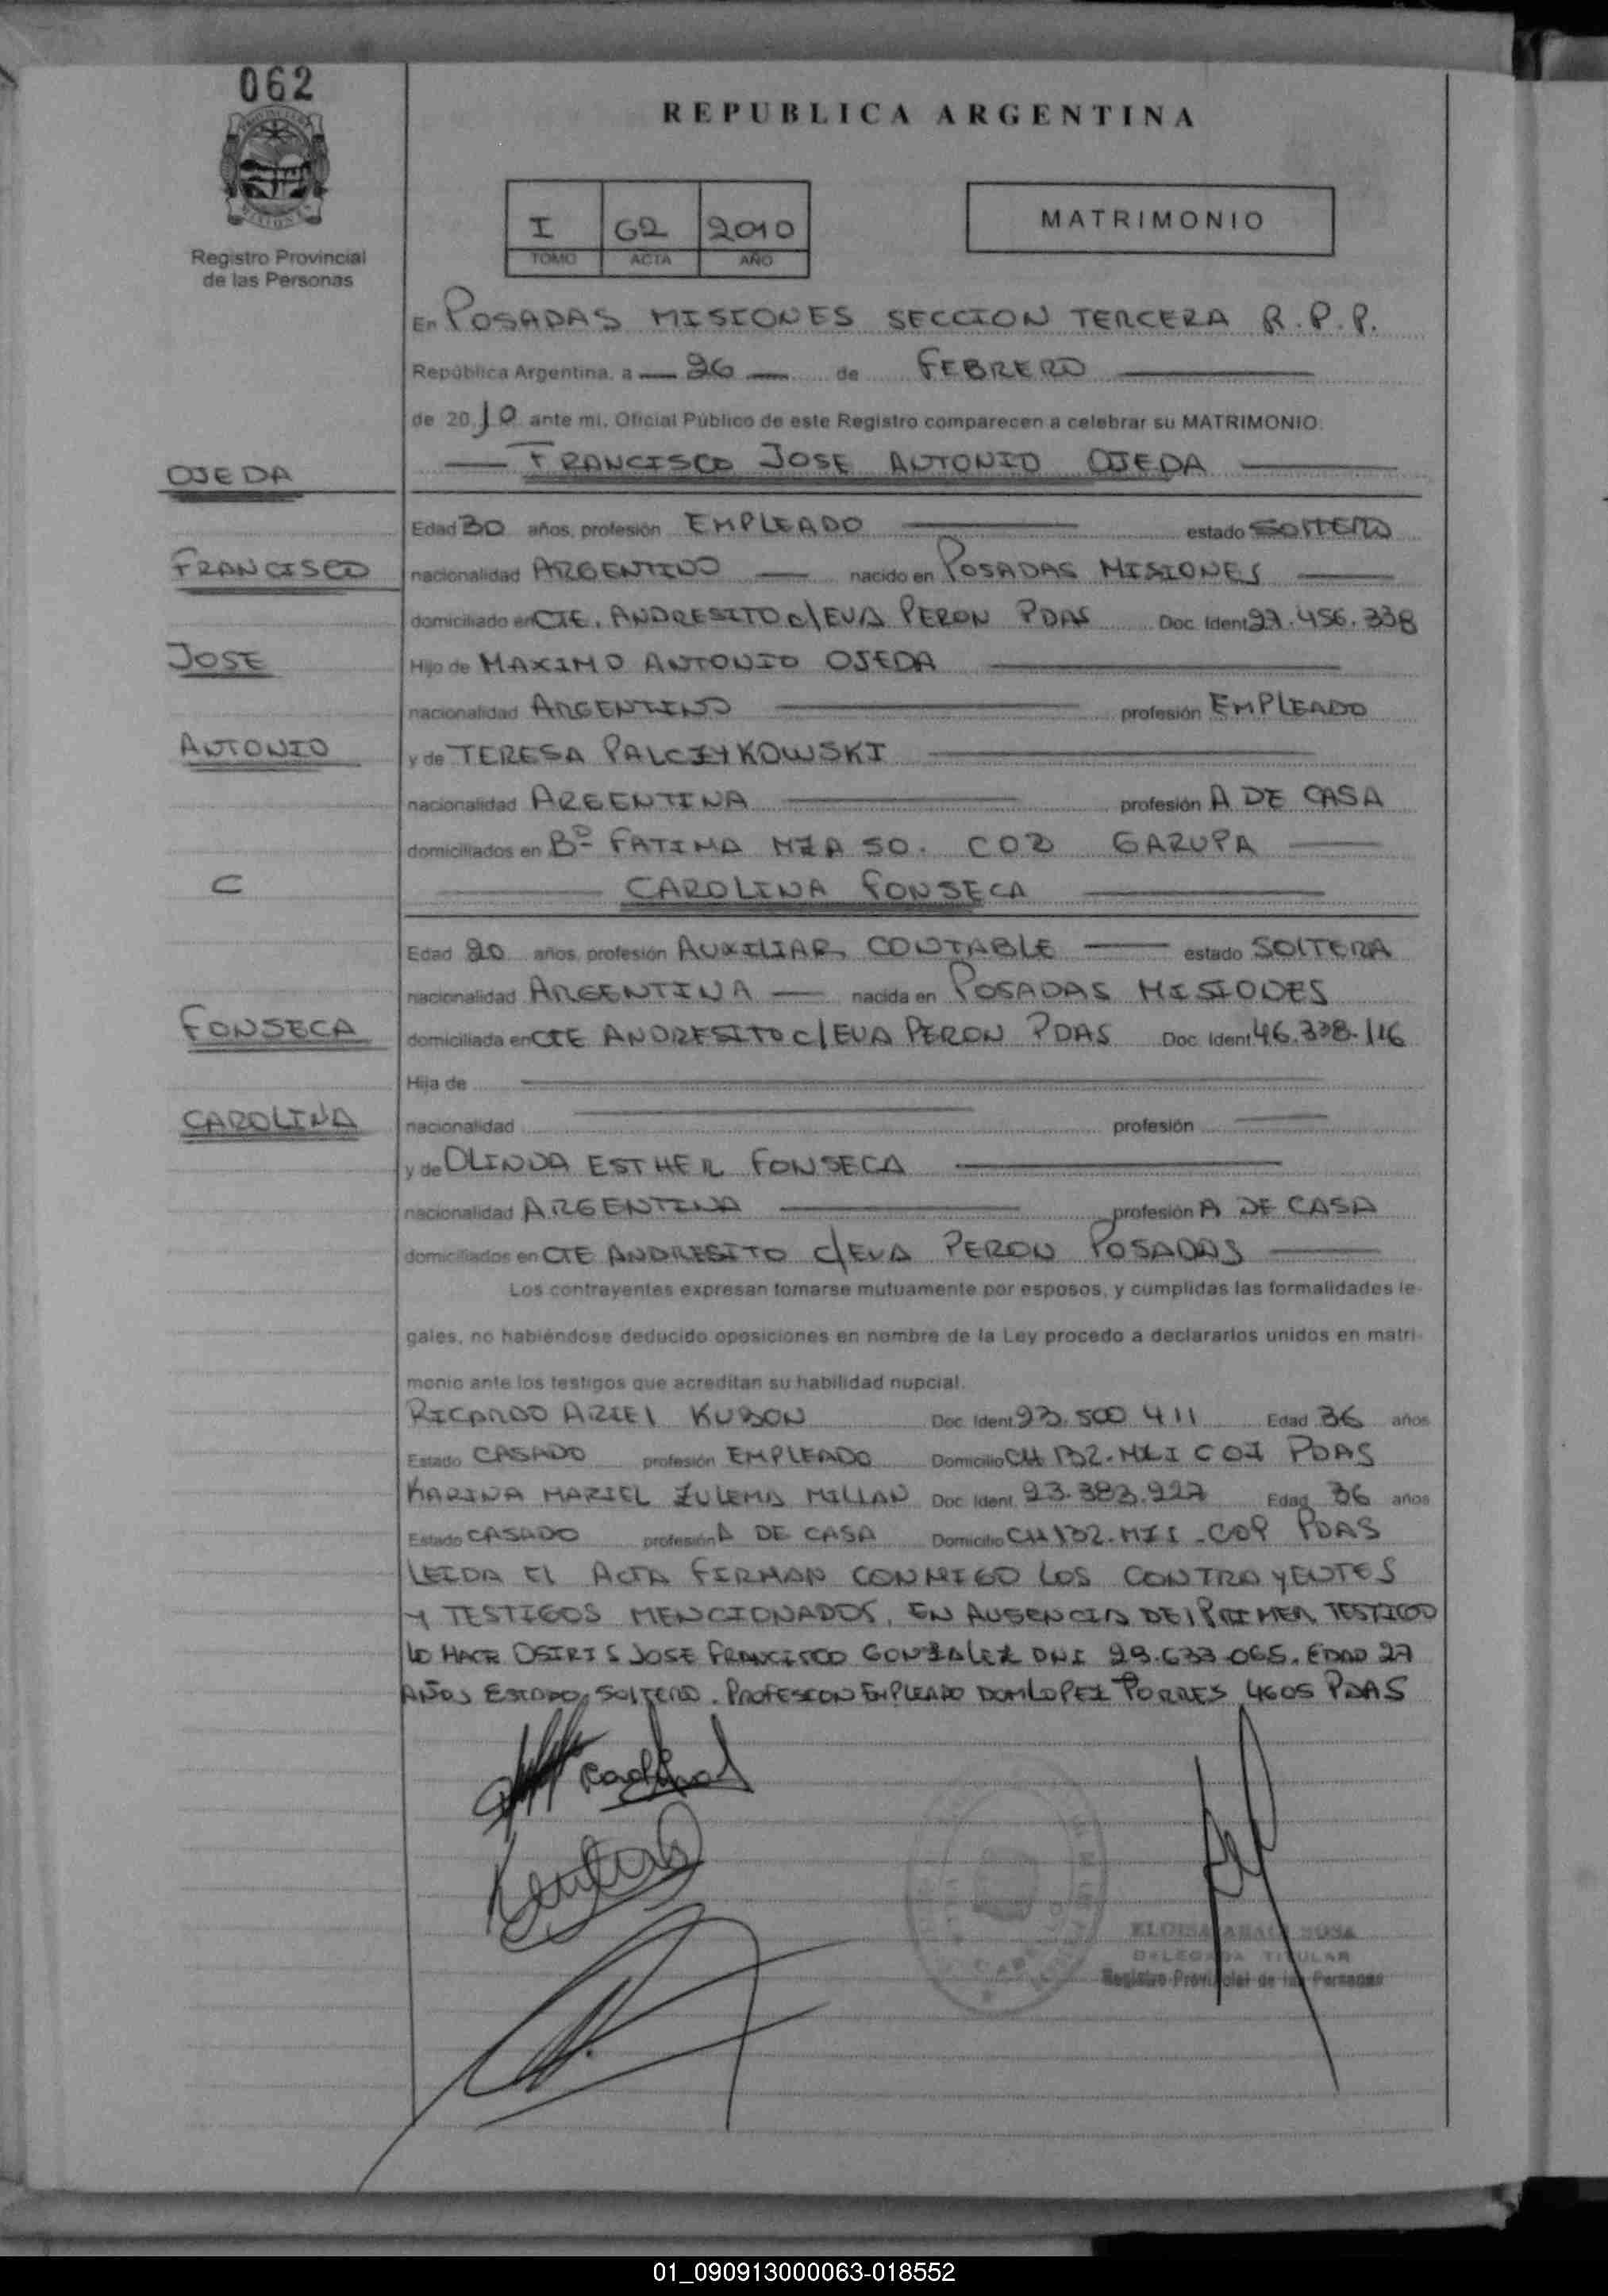 062
REPUBLICA ARGENTINA
MISIONES
Registro Provincial
de las Personas
I 62 2010
TOMO ACTA AÑO
MATRIMONIO
En POSADAS MISIONES SECCION TERCERA R.P.P.
República Argentina, a 26 de FEBRERO
de 2010 ante mi, Oficial Público de este Registro comparecen a celebrar su MATRIMONIO.
OJEDA
FRANCISCO JOSE ANTONIO OJEDA
Edad 30 años, profesión EMPLEADO estado SOLTERO
FRANCISCO
nacionalidad ARGENTINO nacido en POSADAS MISIONES
domiciliado en CTE. ANDRESITO c/EVA PERON PDAS Doc. Ident 27.456.338
JOSE
Hijo de MAXIMO ANTONIO OJEDA
nacionalidad ARGENTINO profesión EMPLEADO
ANTONIO
y de TERESA PALCZYKOWSKI
nacionalidad ARGENTINA profesión A DE CASA
domiciliados en Bº FATIMA MZA 50. C02 GARUPA
C
CAROLINA FONSECA
Edad 20 años, profesión AUXILIAR CONTABLE estado SOLTERA
nacionalidad ARGENTINA nacida en POSADAS MISIONES
FONSECA
domiciliada en CTE ANDRESITO c/EVA PERON PDAS Doc. Ident 46.338.116
Hija de
CAROLINA
nacionalidad profesión
y de OLINDA ESTHER FONSECA
nacionalidad ARGENTINA profesión A DE CASA
domiciliados en CTE ANDRESITO c/EVA PERON POSADAS
Los contrayentes expresan tomarse mutuamente por esposos, y cumplidas las formalidades le-
gales, no habiéndose deducido oposiciones en nombre de la Ley procedo a declararlos unidos en matri-
monio ante los testigos que acreditan su habilidad nupcial.
RICARDO ARIEL KUBON Doc. Ident. 23.500 411 Edad 36 años
Estado CASADO profesión EMPLEADO Domicilio CH 132. PDAS
KARINA MARIEL ZULEMA MILLAN Doc. Ident. 23.383.927 Edad 36 años
Estado CASADO profesión A DE CASA Domicilio CH 132. PDAS
LEIDA EL ACTA FIRMAN CONMIGO LOS CONTRAYENTES
Y TESTIGOS MENCIONADOS. EN AUSENCIA DEL PRIMER TESTIGO
LO HACE OSIRIS JOSE FRANCISCO GONZALEZ DNI 29.633.065. EDAD 27
AÑOS ESTADO SOLTERO. PROFESION EMPLEADO DOM LOPEZ TORRES 4605 PDAS
DELEGADA TITULAR
Registro Provincial de las Personas
01_090913000063-018552